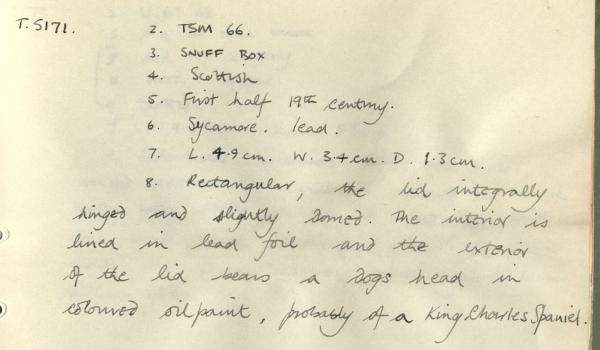 T.5171. 2. TSM 66.
3. SNUFF BOX
4. Scottish
5. First half 19th century.
6. Sycamore. lead.
7. L. 4.9cm. W. 3.4cm. D. 1.3cm.
8. Rectangular, the lid integrally
hinged and slightly domed. The interior is
lined in lead foil and the exterior
of the lid bears a Dogs head in
coloured oil paint, probably of a King Charles Spaniel.